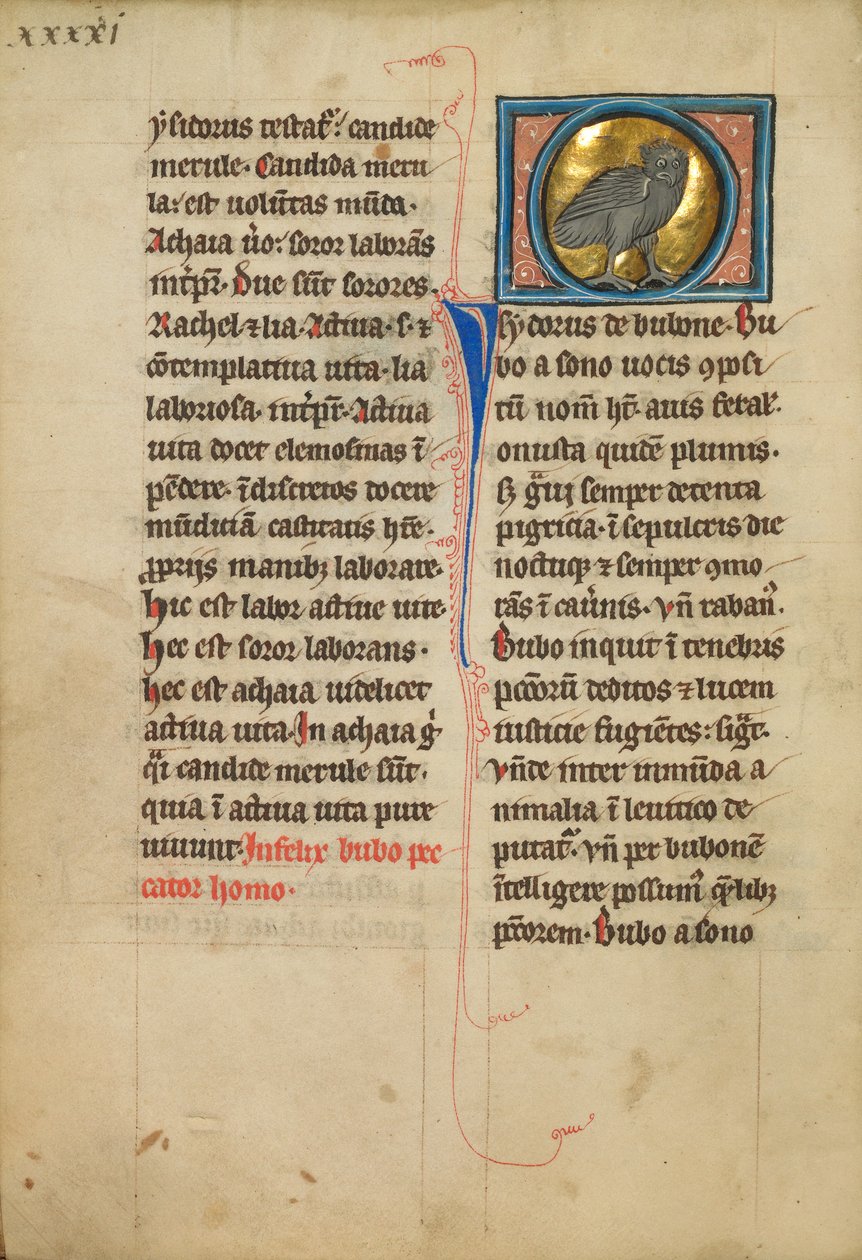 xxxxi
ysidorus testat᷑. candide
merule. Candida meru
la. est uolūtas mūda.
Achaia u̍o. soror laborās
int̍p̄r. Due sūt sorores.
Rachel ⁊ lia. Actiua .s. ⁊
cōtemplatiua uita. lia
laboriosa. int̍p̄r. Actiua
uita docet elemosinas ī
pēdere. īdiscretos docere
mūdiciā castitatis hr̄e.
ꝓprijs manibꝫ laborare.
hic est labor actiue uite.
hec est soror laborans.
hec est achaia uidelicet
actiua uita. In achaia g̍
qͣi candide merule sūt.
quia ī actiua uita pure
uiuunt. Infelix bubo pec
cator homo.
Ysydorus de bubone. Bu
bo a sono uocis ꝯposi
tū nom̄ h̄t. auis feral᷑.
onusta quidē plumis.
sꝫ gͣui semper detenta
pigricia. ī sepulcris die
noctuqꝫ ⁊ semper ꝯmo
rās ī cau̍nis. vn̄ raban᷒.
Bubo inquit ī tenebris
pcc̄orū deditos ⁊ lucem
iusticie fugiētes. sigͣt.
vn̄de inter inmūda a
nimalia ī leuitico de
putat᷑. vn̄ per bubonē
ītelligere possum᷒ q̄libꝫ
pcc̄orem. Bubo a sono